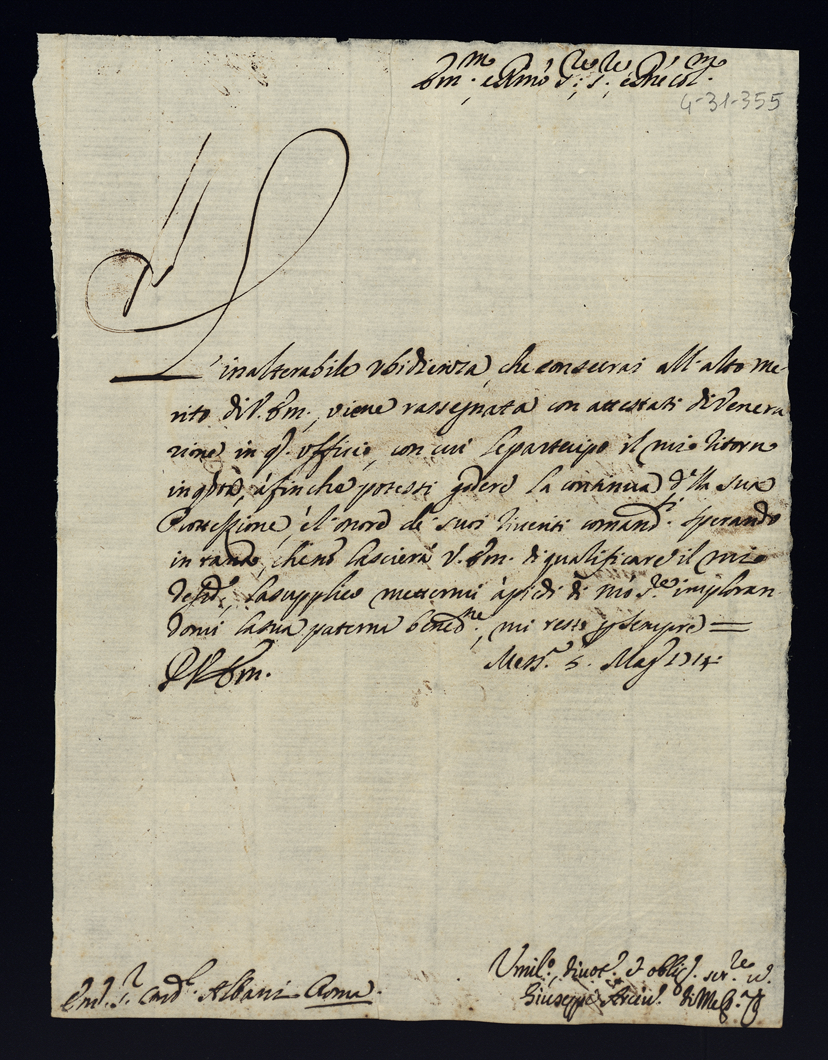 Em.mo e Rmo Sig.re S.re e Pne Col.mo
4-31-355
L'inalterabile ubidienza, che consecrai all'alto me-
rito di V. Em., viene rassegnata con attestati di venera
zione in q.o ufficio, con cui le partecipo il mio ritorno
in q.sta Città, afinche potessi godere la continuanza d.lla sua
Protezzione, è l'onore de suoi riveriti comandi. Sperando
intanto, che nò lascierà V. Em. di qualificare il mio
desid.o, la supplico mettermi à piedi di N.ro S.re imploran
domi la sua paterna bened.ne, mi resto p sempre =
D V. Em. Mess.a 5. Mag.o 1714
Umil.o, divot.o et oblig.o ser.re v.o
Em. S.r Card.l Albani Roma.
Giuseppe Arciv.o di Mess.a